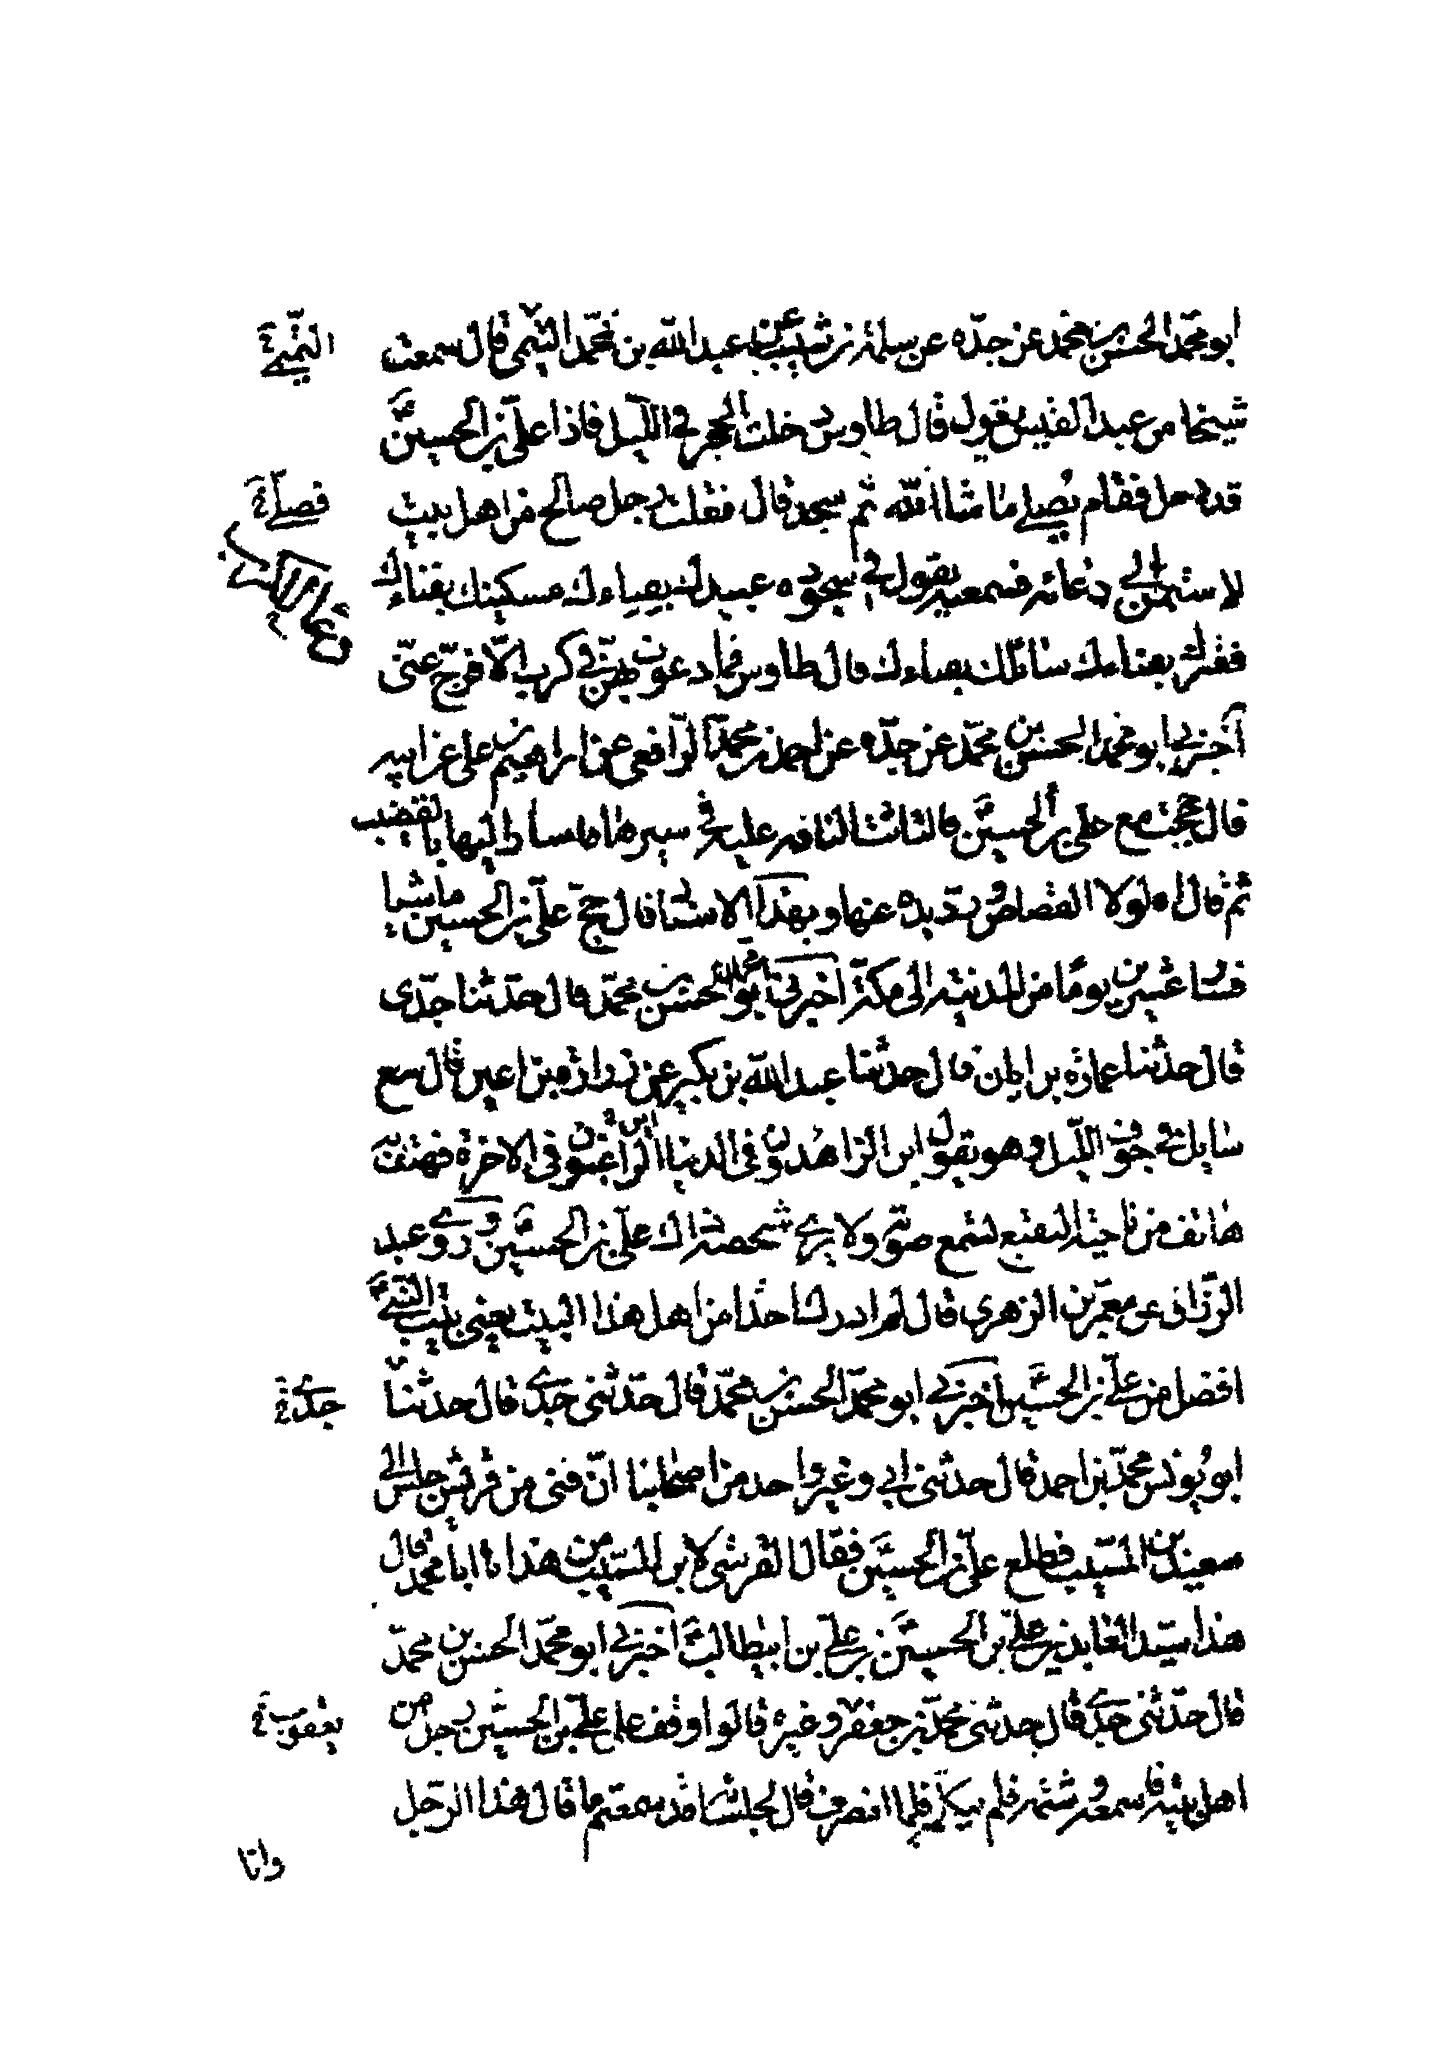 ابو محمد الحسن بن محمد عن جده عن سلمة بن شبيب عن عبد الله بن محمد التيمى قال سمعت
التيمي خ
شيخا من عبد القيس يقول قال طاوس دخلت الحجر فى الليل فاذا على بن الحسين ع
قد دخل فقام يصلى ما شا الله ثم سجد قال فقلت رجل صالح من اهل بيت
فصلى خ
لاستمعن الى دعائه فسمعته يقول فى سجوده عبيدك بفناءك مسكينك بفناءك
فقيرك بفناءك سائلك بفناءك قال طاوس فما دعوت بهن فى كرب الا فرج عنى
اخبرنى ابو محمد الحسن بن محمد عن جده عن احمد بن محمد الرافعى عن ابراهيم بن على عن ابيه
قال حججت مع على بن الحسين ع فالتاثت الناقه عليه فى سيرها فاشار اليها بالقضيب
ثم قال اه لولا القصاص ورد يده عنها وبهذا الاسناد قال حج على بن الحسين ماشيا
فسار عشرين يوما من المدينه الى مكة اخبرنى ابو محمد الحسن بن محمد قال حدثنا جدى
قال حدثنا عمار بن ابان قال حدثنا عبد الله بن بكير عن زرارة بن اعين قال سمع
سايل فى جوف الليل وهو يقول اين الزاهدون فى الدنيا اين الراغبون فى الاخرة فهتف به
هاتف من ناحية البقيع تسمع صوته ولا يرى شخصه ذاك على بن الحسين ع وروى عبد
الرزاق عن معمر بن الزهرى قال لم ادرك احدا من اهل هذا البيت يعنى بيت النبى ع
افضل من على بن الحسين ع اخبرنى ابو محمد الحسن بن محمد قال حدثنى جدى قال حدثنا
جدى خ
ابو يونس محمد بن احمد قال حدثنى ابى وغير واحد من اصحابنا ان فتى من قريش جلس الى
سعيد بن المسيب فطلع على بن الحسين ع فقال القرشى لابن المسيب من هذا يا ابا محمد قال
هذا سيد العابدين على بن الحسين بن على بن ابيطالب ع اخبرنى ابو محمد الحسن بن محمد
قال حدثنى جدى قال حدثنى محمد بن جعفر وغيره قالوا وقف على على بن الحسين رجل من
يعقوب خ
اهل بيته فاسمعه وشتمه فلم يكلمه فلما انصرف قال لجلسائه قد سمعتم ما قال هذا الرجل
وانا